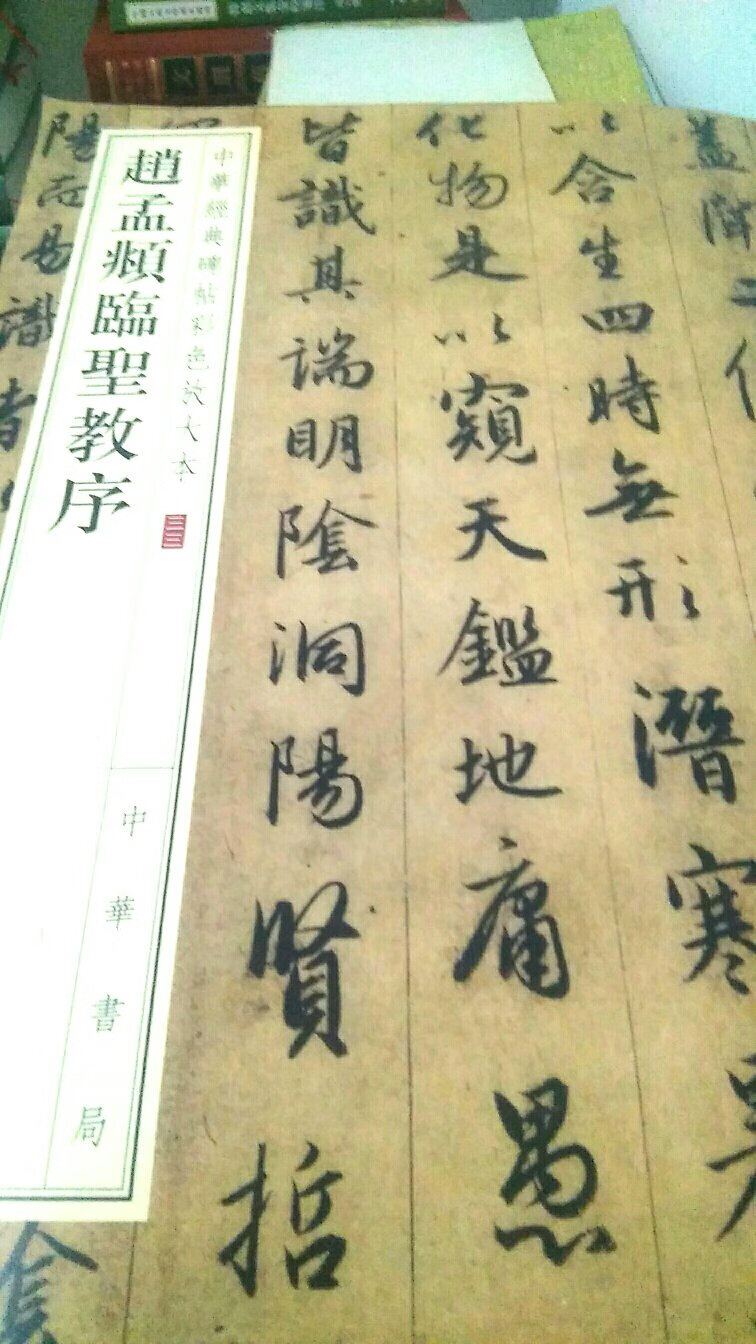 蓋
以含生四時無形潛寒
化物是以窺天鑑地庸愚
皆識其端明陰洞陽賢哲
中華經典碑帖彩色放大本
三三
趙孟頫臨聖教序
中華書局
陽而易識者